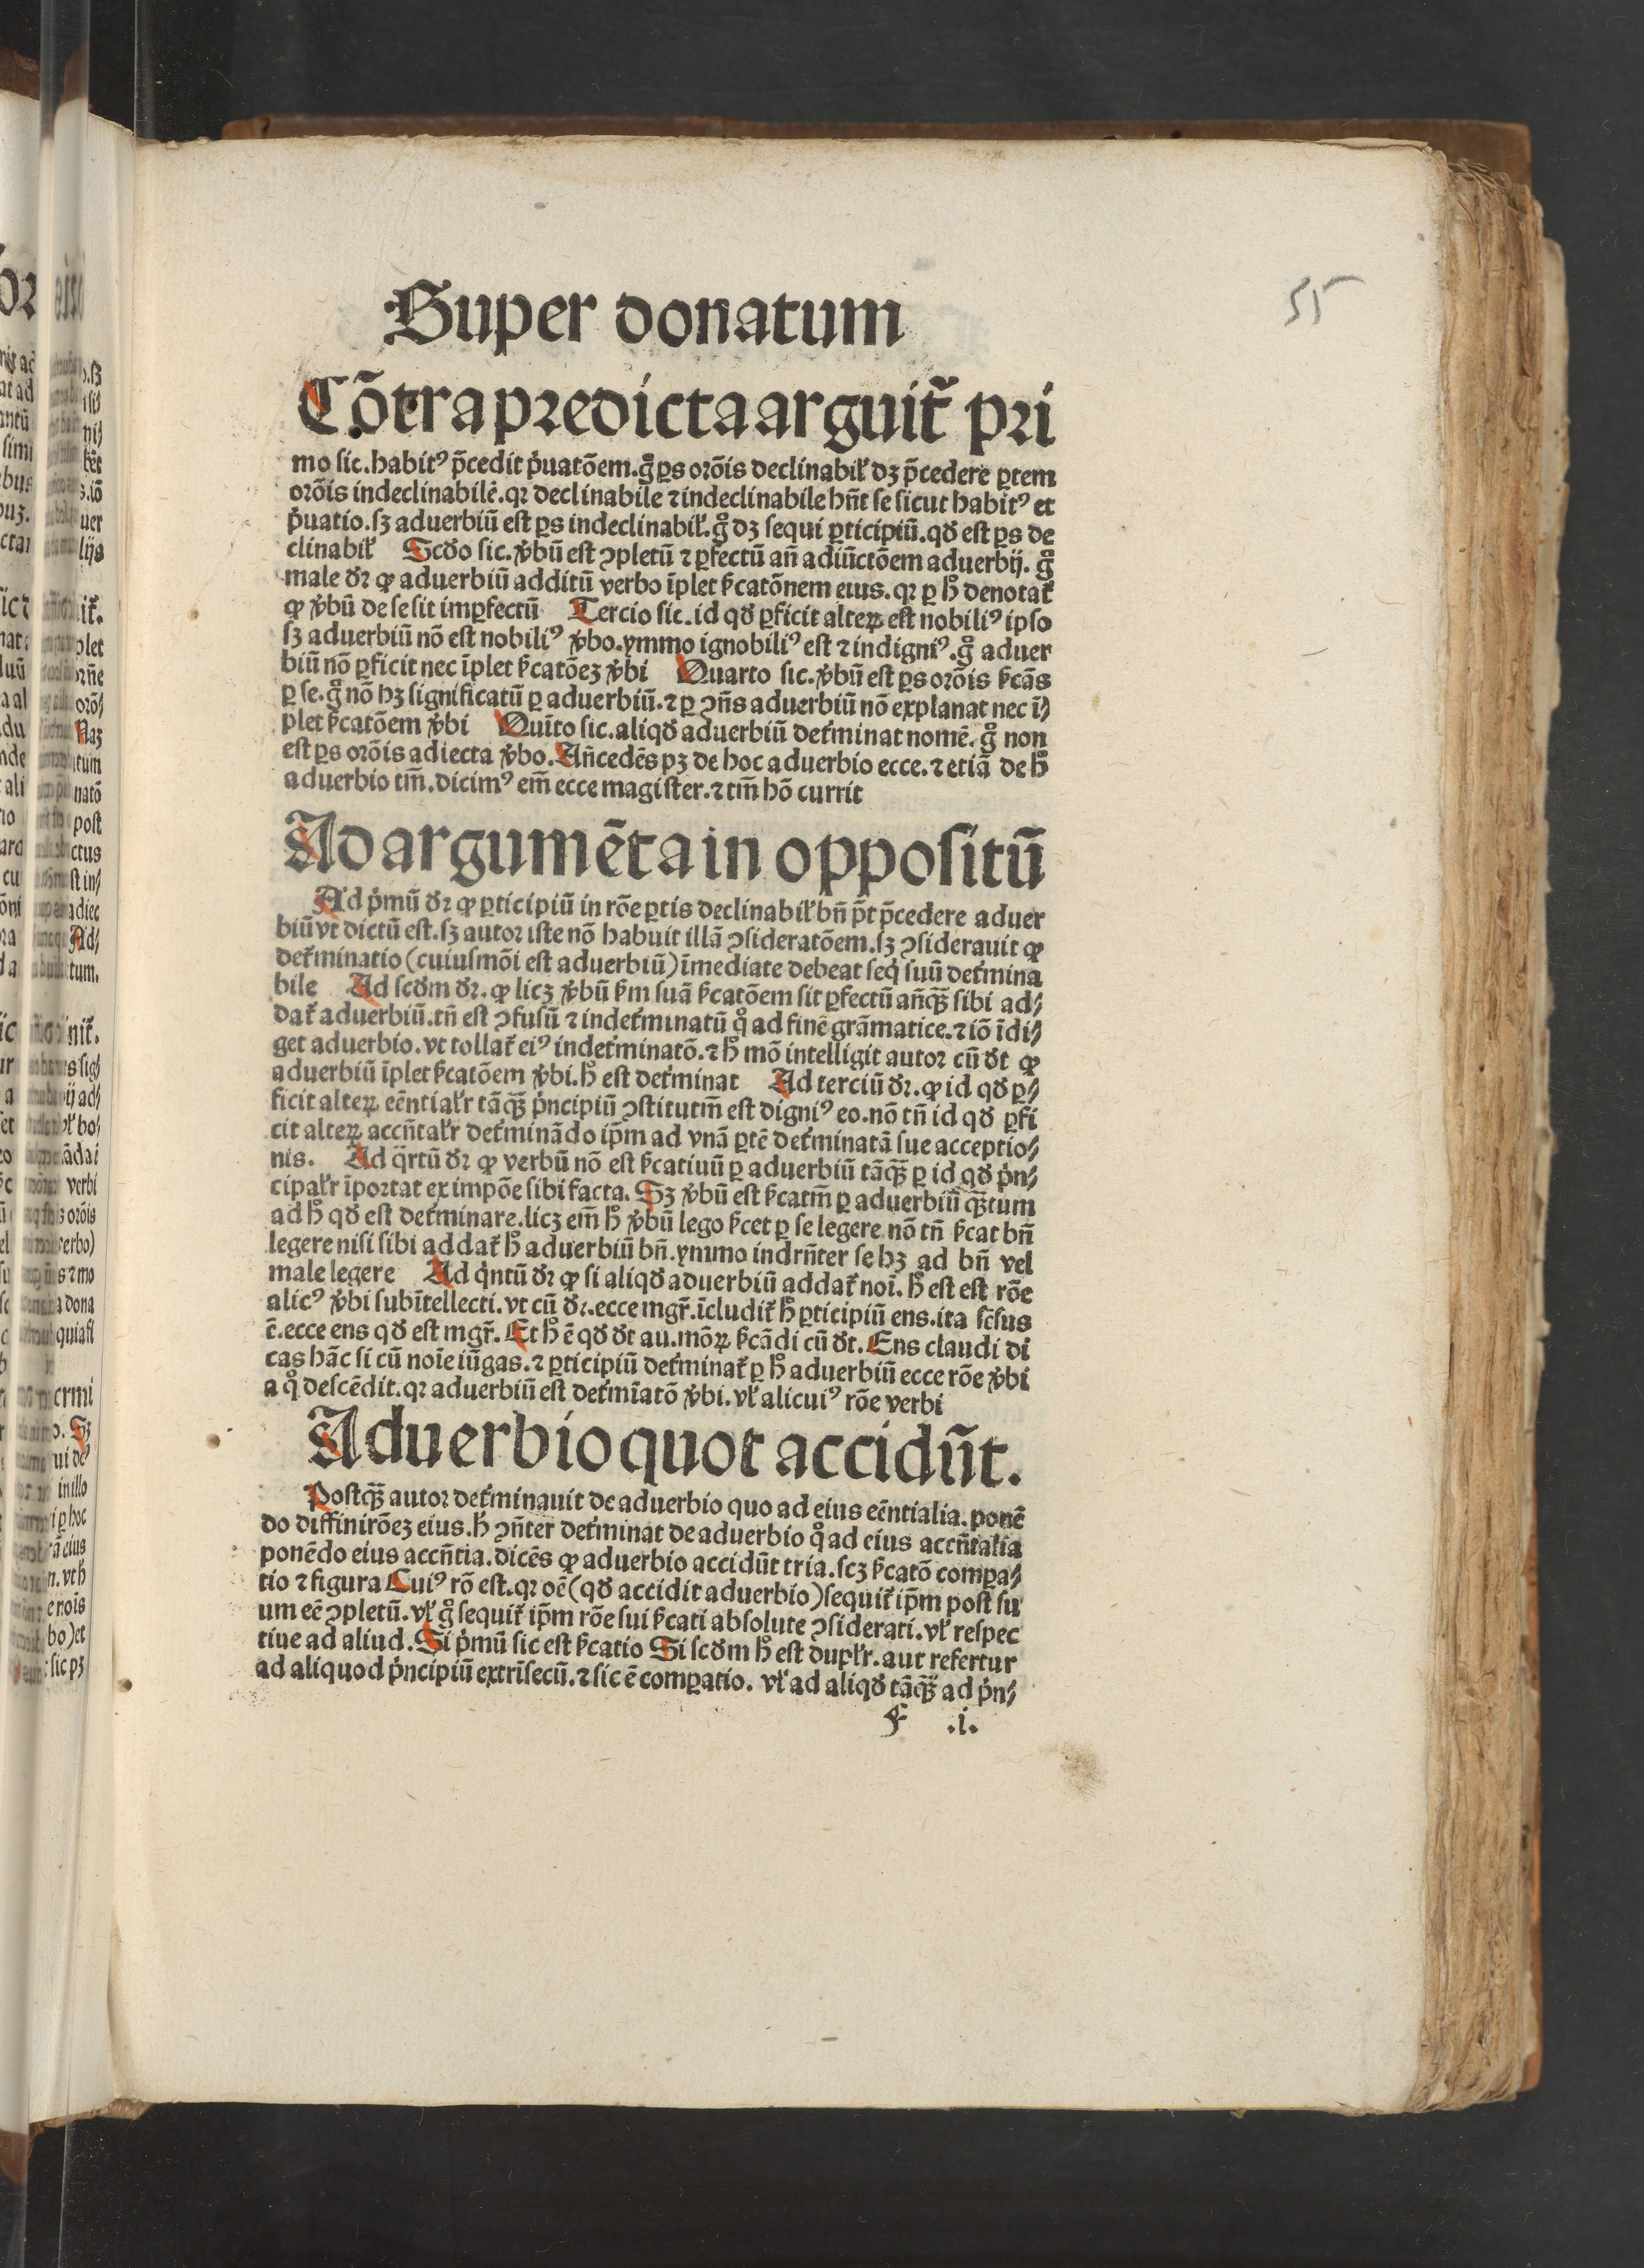 Super donatum
55
Cōtra predicta arguit̄ pri
mo sic. habitꝰ p̄cedit p̍uatōem. gͦ ꝑs orōis declinabił dꝫ p̄cedere ꝑtem
orōis indeclinabilē. qꝛ declinabile ⁊ indeclinabile hn̄t se sicut habitꝰ et
p̍uatio. sꝫ aduerbiū est ꝑs indeclinabił. gͦ dꝫ sequi ꝑticipiū. qď est ꝑs de
clinabił Scďo sic. v̄bū est ꝯpletū ⁊ ꝑfectū an̄ adiūctōem aduerbij. gͦ
male ďr ꝙ aduerbiū additū verbo īplet ẜcatōnem eius. qꝛ ꝑ hͦ denotat̄
ꝙ v̄bū de se sit imꝑfectū Tercio sic. id qď ꝑficit alteꝝ est nobiliꝰ ipso
sꝫ aduerbiū nō est nobiliꝰ v̄bo. ymmo ignobiliꝰ est ⁊ indigniꝰ. gͦ aduer
biū nō ꝑficit nec īplet ẜcatōeꝫ v̄bi Quarto sic. v̄bū est ꝑs orōis ẜcās
ꝑ se. gͦ nō hꝫ significatū ꝑ aduerbiū. ⁊ ꝑ ꝯn̄s aduerbiū nō explanat nec ī/
plet ẜcatōem v̄bi Quīto sic. aliqď aduerbiū det̄minat nomē. gͦ non
est ꝑs orōis adiecta v̄bo. An̄cedēs pꝫ de hoc aduerbio ecce. ⁊ etiā de hͦ
aduerbio tm̄. dicimꝰ em̄ ecce magister. ⁊ tm̄ hō currit
Ad argumēta in oppositū
Ad p̍mū ďr ꝙ ꝑticipiū in rōe ꝑtis declinabił bn̄ p̄t p̄cedere aduer
biū vt dictū est. sꝫ autor iste nō habuit illā ꝯsideratōem. sꝫ ꝯsiderauit ꝙ
det̄minatio (cuiusmōi est aduerbiū) īmediate debeat seq̍ suū det̄mina
bile Ad scďm ďr. ꝙ licꝫ v̄bū ẜm suā ẜcatōem sit ꝑfectū an̄qꝫ̄ sibi ad/
dat̄ aduerbiū. tn̄ est ꝯfusū ⁊ indet̄minatū qͦ ad finē grāmatice. ⁊ iō īdi/
get aduerbio. vt tollat̄ eiꝰ indet̄minatō. ⁊ hͦ mō intelligit autor cū ďt ꝙ
aduerbiū īplet ẜcatōem v̄bi. hͦ est det̄minat Ad terciū ďr. ꝙ id qď ꝑ/
ficit alteꝝ eēntialr̄ tāqꝫ̄ p̍ncipiū ꝯstitutm̄ est digniꝰ eo. nō tn̄ id qď ꝑfi
cit alteꝝ accn̄talr̄ det̄minādo ip̄m ad vnā ꝑtē det̄minatā sue acceptio/
nis. Ad q̄rtū ďr ꝙ verbū nō est ẜcatiuū ꝑ aduerbiū tāqꝫ̄ ꝑ id qď p̍n/
cipalr̄ īportat ex impōe sibi facta. Sꝫ v̄bū est ẜcatm̄ ꝑ aduerbiū qꝫ̄tum
ad hͦ qď est det̄minare. licꝫ em̄ hͦ v̄bū lego ẜcet ꝑ se legere nō tn̄ ẜcat bn̄
legere nisi sibi addat̄ hͦ aduerbiū bn̄. ymmo indrn̄ter se hꝫ ad bn̄ vel
male legere Ad q̍ntū ďr ꝙ si aliqď aduerbiū addat̄ noī. hͦ est est rōe
alicꝰ v̄bi subītellecti. vt cū ďr. ecce mgr̄. īcludit̄ hͦ ꝑticipiū ens. ita sēsus
ē. ecce ens qď est mgr̄. Et hͦ ē qď ďt au. mōꝝ ẜcādi cū ďt. Ens claudi di
cas hāc si cū noīe iūgas. ⁊ ꝑticipiū det̄minat̄ ꝑ hͦ aduerbiū ecce rōe v̄bi
a qͦ descēdit. qꝛ aduerbiū est det̄mīatō v̄bi. vł alicuiꝰ rōe verbi
Aduerbio quot accidūt.
Postqꝫ̄ autor det̄minauit de aduerbio quo ad eius eēntialia. ponē
do diffinirōeꝫ eius. h̍ ꝯn̄ter det̄minat de aduerbio qͦ ad eius accn̄talia
ponēdo eius accn̄tia. dicēs ꝙ aduerbio accidūt tria. scꝫ ẜcatō compa/
tio ⁊ figura Cuiꝰ rō est. qꝛ oē (qď accidit aduerbio) sequit̄ ip̄m post su
um eē ꝯpletū. vł gͦ sequit̄ ip̄m rōe sui ẜcati absolute ꝯsiderati. vł respec
tiue ad aliud. Si p̍mū sic est ẜcatio Si scďm hͦ est duplr̄. aut refertur
ad aliquod p̍ncipiū extrīsecū. ⁊ sic ē comꝑatio. vł ad aliqď tāqꝫ̄ ad p̍n/
F .i.